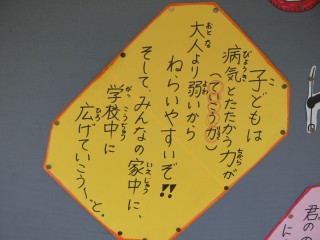 子どもは
病気とたたかう力が
(ていこう力)
大人より弱いから
ねらいやすいぞ!!
そして、みんなの家中に、
学校中に
広げていこうっと。
君のの
に